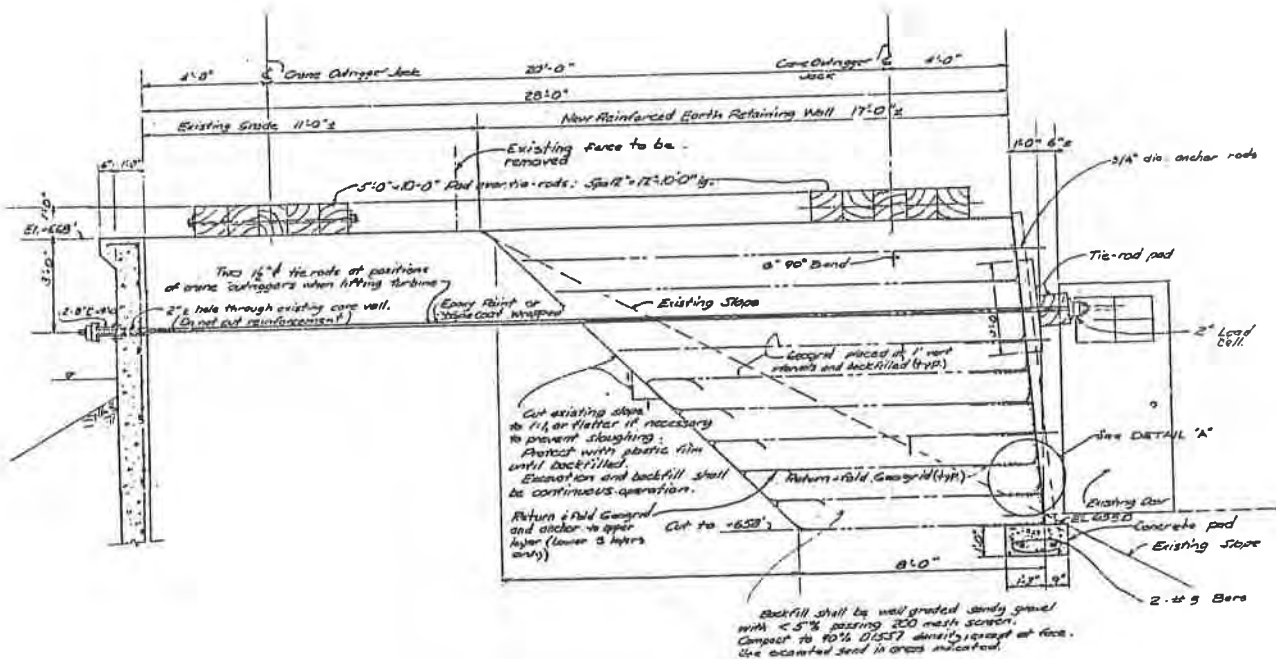 4'-0"
℄ Crane Outrigger Jack
20'-0"
Crane Outrigger
Jack
℄
4'-0"
28'-0"
Existing Grade 11'-0" ±
New Reinforced Earth Retaining Wall 17'-0" ±
Existing fence to be
removed
1'-0" 6" ±
3/4" dia. anchor rods
6" 1'-0"
5'-0" × 10'-0" Pad over tie-rods:
10'-0" lg.
1'-0"
El. +668'
3'-0"
90° Bend
Tie-rod pad
Two 1½" ϕ tie rods at positions
of crane outriggers when lifting turbine
Epoxy Paint or
wrapped
Existing Slope
2" ± hole through existing core wall.
(Do not cut reinforcement)
2" Load
Cell.
Geogrid placed at 1' vert
intervals and backfilled (typ.)
Cut existing slope
to 1:1, or flatter if necessary
to prevent sloughing.
Protect with plastic film
until backfilled.
Excavation and backfill shall
be continuous operation.
See DETAIL "A"
Return & fold Geogrid (typ.)
Existing Door
Return & fold Geogrid
and anchor to upper
layer (Lower 3 layers
only)
Cut to +658'
EL 658.0
Concrete pad
Existing Slope
1'-0"
8'-0"
1'-3" 9"
2 - #5 Bars
Backfill shall be well graded sandy gravel
with < 5% passing 200 mesh screen.
Compact to 90% D1557 density, except at face.
Use excavated sand in areas indicated.